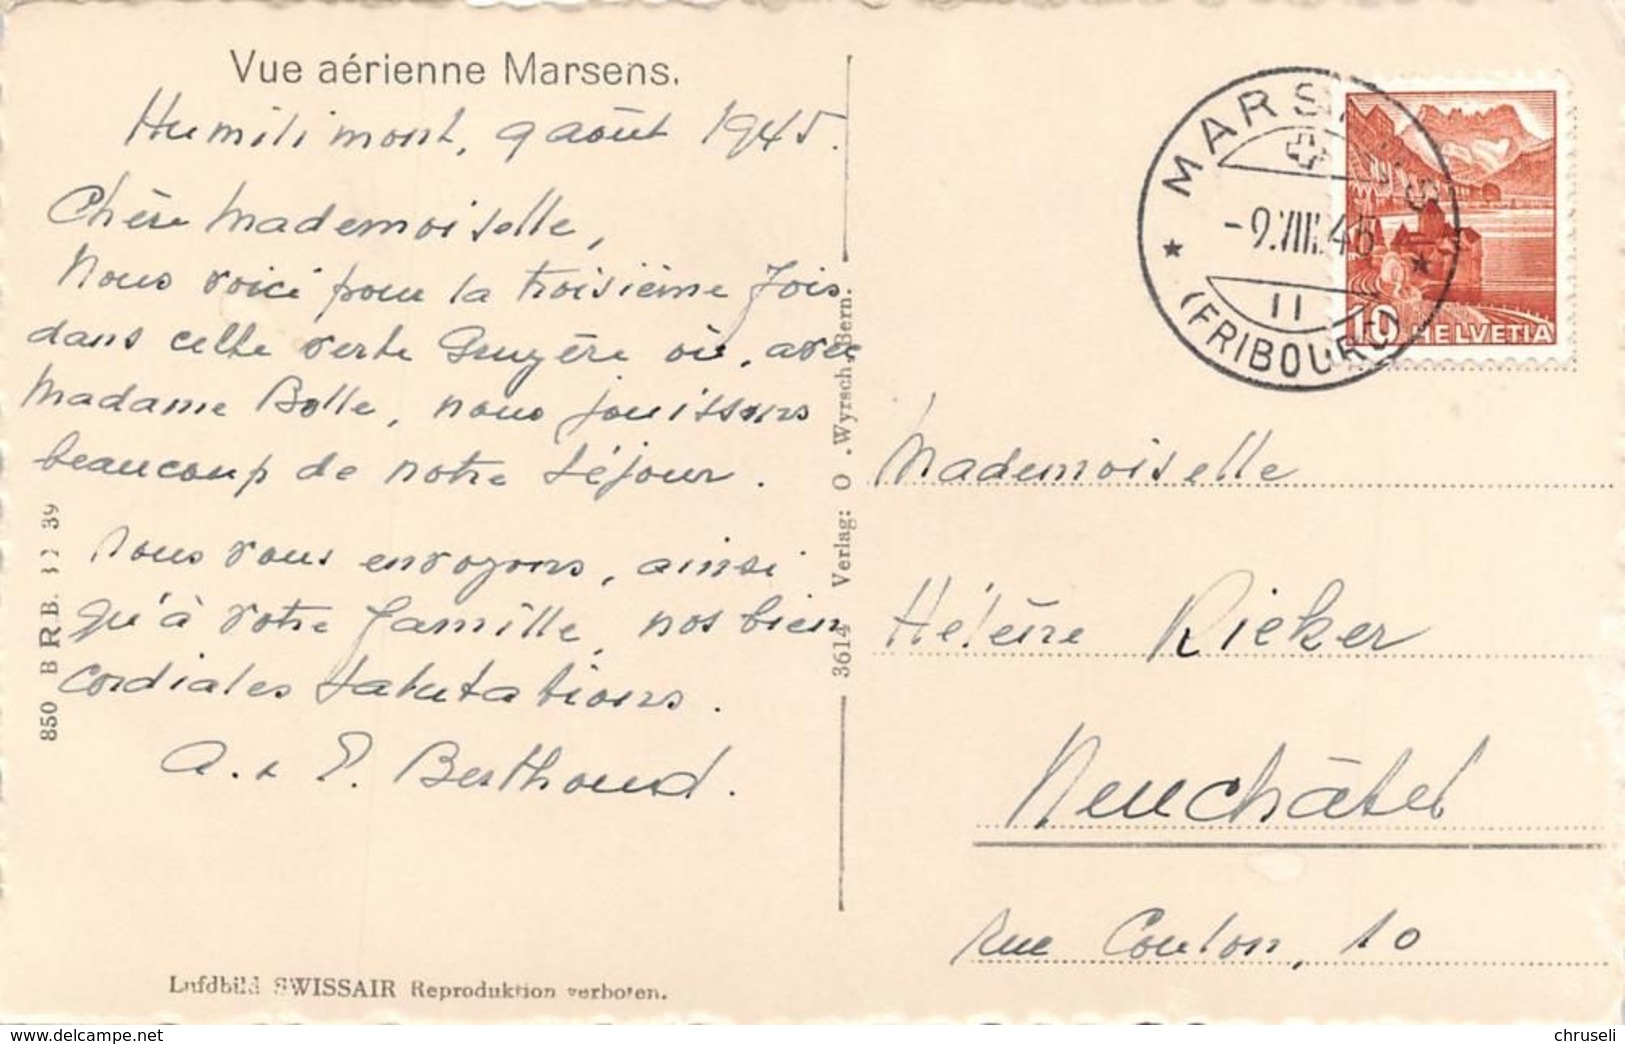 Vue aérienne Marsens.
Humilimont, 9 août 1945.
Chère Mademoiselle,
Nous voici pour la troisième fois
dans cette verte Gruyère où, avec
Madame Bolle, nous jouissons
beaucoup de notre séjour.
Nous vous envoyons, ainsi
qu'à votre famille, nos bien
cordiales salutations.
A. & P. Berthoud.
Lufdbild SWISSAIR Reproduktion verboten.
850 B R.B. 39
3614 Verlag: O. Wyrsch, Bern.
MARSENS
-9.VIII.45
II
(FRIBOURG)
10 HELVETIA
Mademoiselle
Hélène Rieker
Neuchâtel
rue Coulon, 10
chruseli